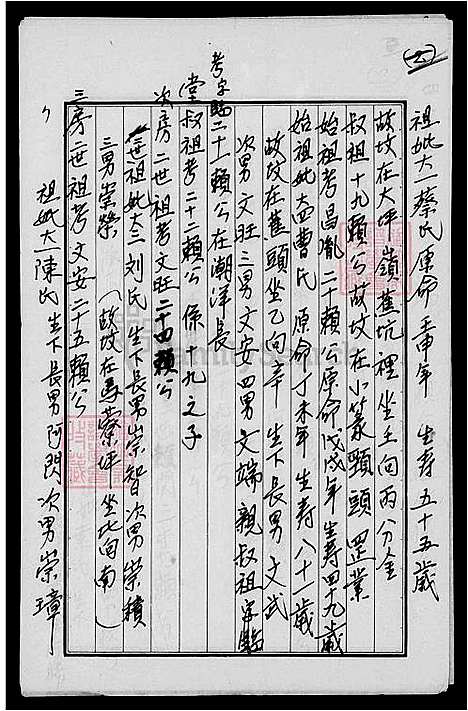 祖妣大一蔡氏 原命壬申年 生寿五十五歲
故坟在大坪嶺蕉坑裡坐壬向丙分金
叔祖十九賴公故坟在小篆頸頭罡業
始祖考昌胤二十賴公原命戊戌年生寿四十九歲
始祖妣大四曹氏 原命丁未年生寿八十一歲
故坟在蕉頭坐乙向辛 生下長男文武
次男文旺三男文安四男文端親叔祖
考字 二十一賴公在潮洋長
堂叔祖考二十二賴公 係十九之子
次房二世祖考文旺二十四賴公
二世祖妣大三刘氏 生下長男崇智次男崇積
三男崇榮 (故坟在馬寮坪坐北向南)
三房二世祖考文安二十五賴公
祖妣大一陳氏 生下長男阿閃次男崇璋